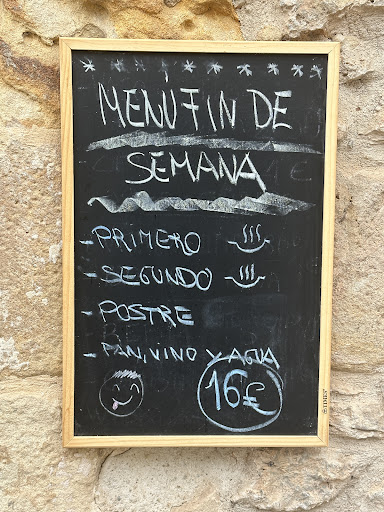 MENU FIN DE
SEMANA
- PRIMERO
- SEGUNDO
- POSTRE
- PAN, VINO Y AGUA
16€